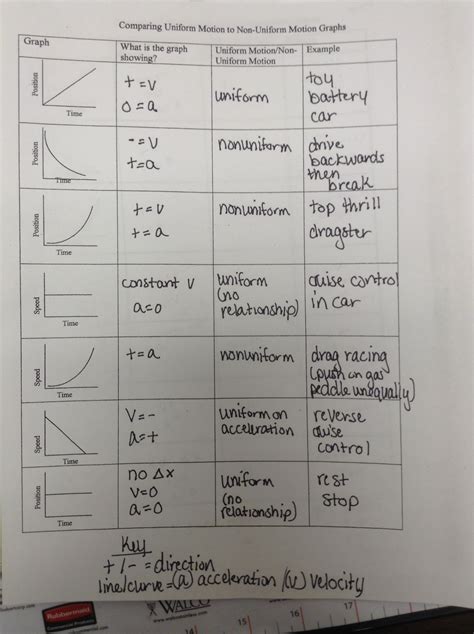 Comparing Uniform Motion to Non-Uniform Motion Graphs
Graph
What is the graph
showing?
Uniform Motion/Non-
Uniform Motion
Example
Position
Time
+ = v
0 = a
uniform
toy
battery
car
Position
Time
- = v
+ = a
nonuniform
drive
backwards
then
break
Position
Time
+ = v
+ = a
nonuniform
top thrill
dragster
Speed
Time
constant v
a=0
uniform
(no
relationship)
cruise control
in car
Speed
Time
+ = a
nonuniform
drag racing
(push on gas
peddle unequally)
Speed
Time
V = -
a = +
uniform on
acceleration
reverse
cruise
control
Position
Time
no Δx
v=0
a=0
uniform
(no
relationship)
rest
stop
Key
+ / - = direction
line/curve = (a) acceleration / (v) velocity
Rubbermaid
Commercial Products
WALCO
15
16
17